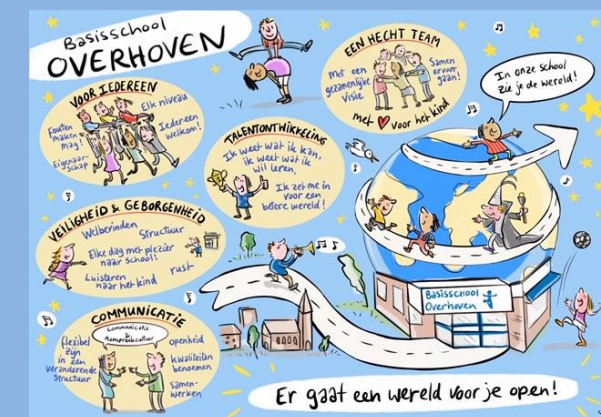 Basisschool
OVERHOVEN
VOOR IEDEREEN
Fouten
maken
mag!
Elk niveau
Iedereen
welkom!
Eigenaar-
schap
EEN HECHT TEAM
Met een
gezamenlijke
visie
Samen
ervoor
gaan!
met voor het kind
In onze school
zie je de wereld!
TALENTONTWIKKELING
Ik weet wat ik kan,
ik weet wat ik
wil leren,
Ik zet me in
voor een
betere wereld!
VEILIGHEID & GEBORGENHEID
Welbevinden
Structuur
Elke dag met plezier
naar school!
Luisteren
naar het kind
rust
COMMUNICATIE
Communicatie
&
Aanspreekcultuur
flexibel
zijn
in een
veranderende
structuur
openheid
kwaliteiten
benoemen
samen-
werken
Basisschool
Overhoven
Er gaat een wereld voor je open!